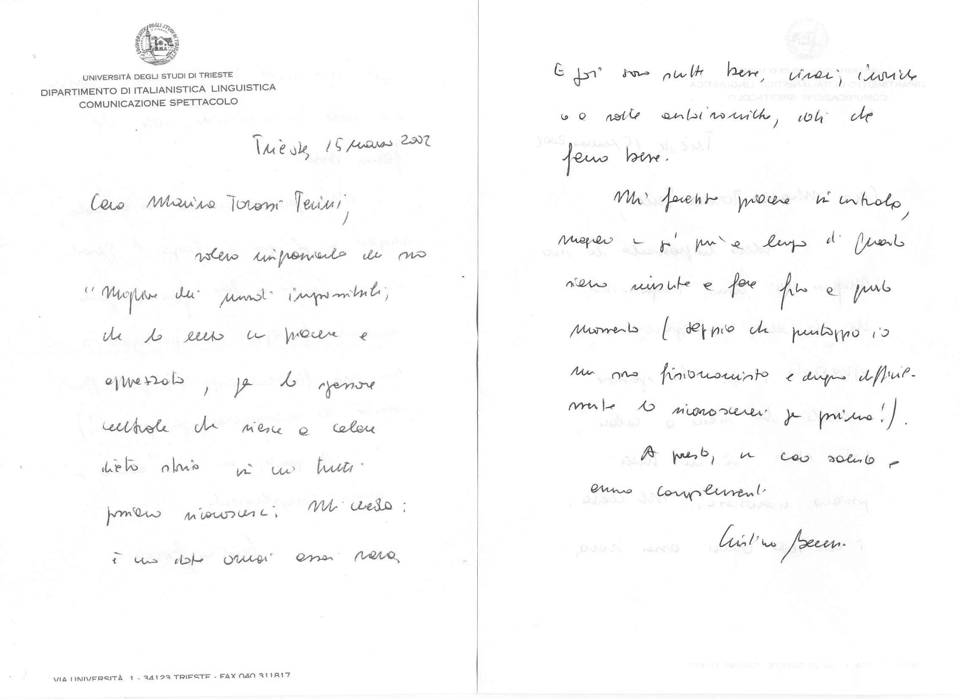 UNIVERSITÀ DEGLI STUDI DI TRIESTE
DIPARTIMENTO DI ITALIANISTICA LINGUISTICA
COMUNICAZIONE SPETTACOLO
Trieste, 15 marzo 2002
Cara Marina Torossi Tevini,
volevo ringraziarla del suo
"Migrare dei mondi impossibili,
che ho letto con piacere e
apprezzato, per lo spessore
culturale che riesce a celare
dietro storie in cui tutti
possiamo riconoscerci. Mi creda:
è una dote ormai assai rara.
E poi sono scritte bene, vivaci, ironiche
o a volte autoironiche, doti che
fanno bene.
Mi farebbe piacere incontrarla,
magari in più a lungo di quanto
siamo riuscite a fare fino a questo
momento (seppia che purtroppo io
non sono fisionomista e dunque difficil-
mente la riconoscerei per prima!).
A presto, un caro saluto e
ancora complimenti
Cristina Benussi
VIA UNIVERSITÀ 1 - 34123 TRIESTE - FAX 040 311817